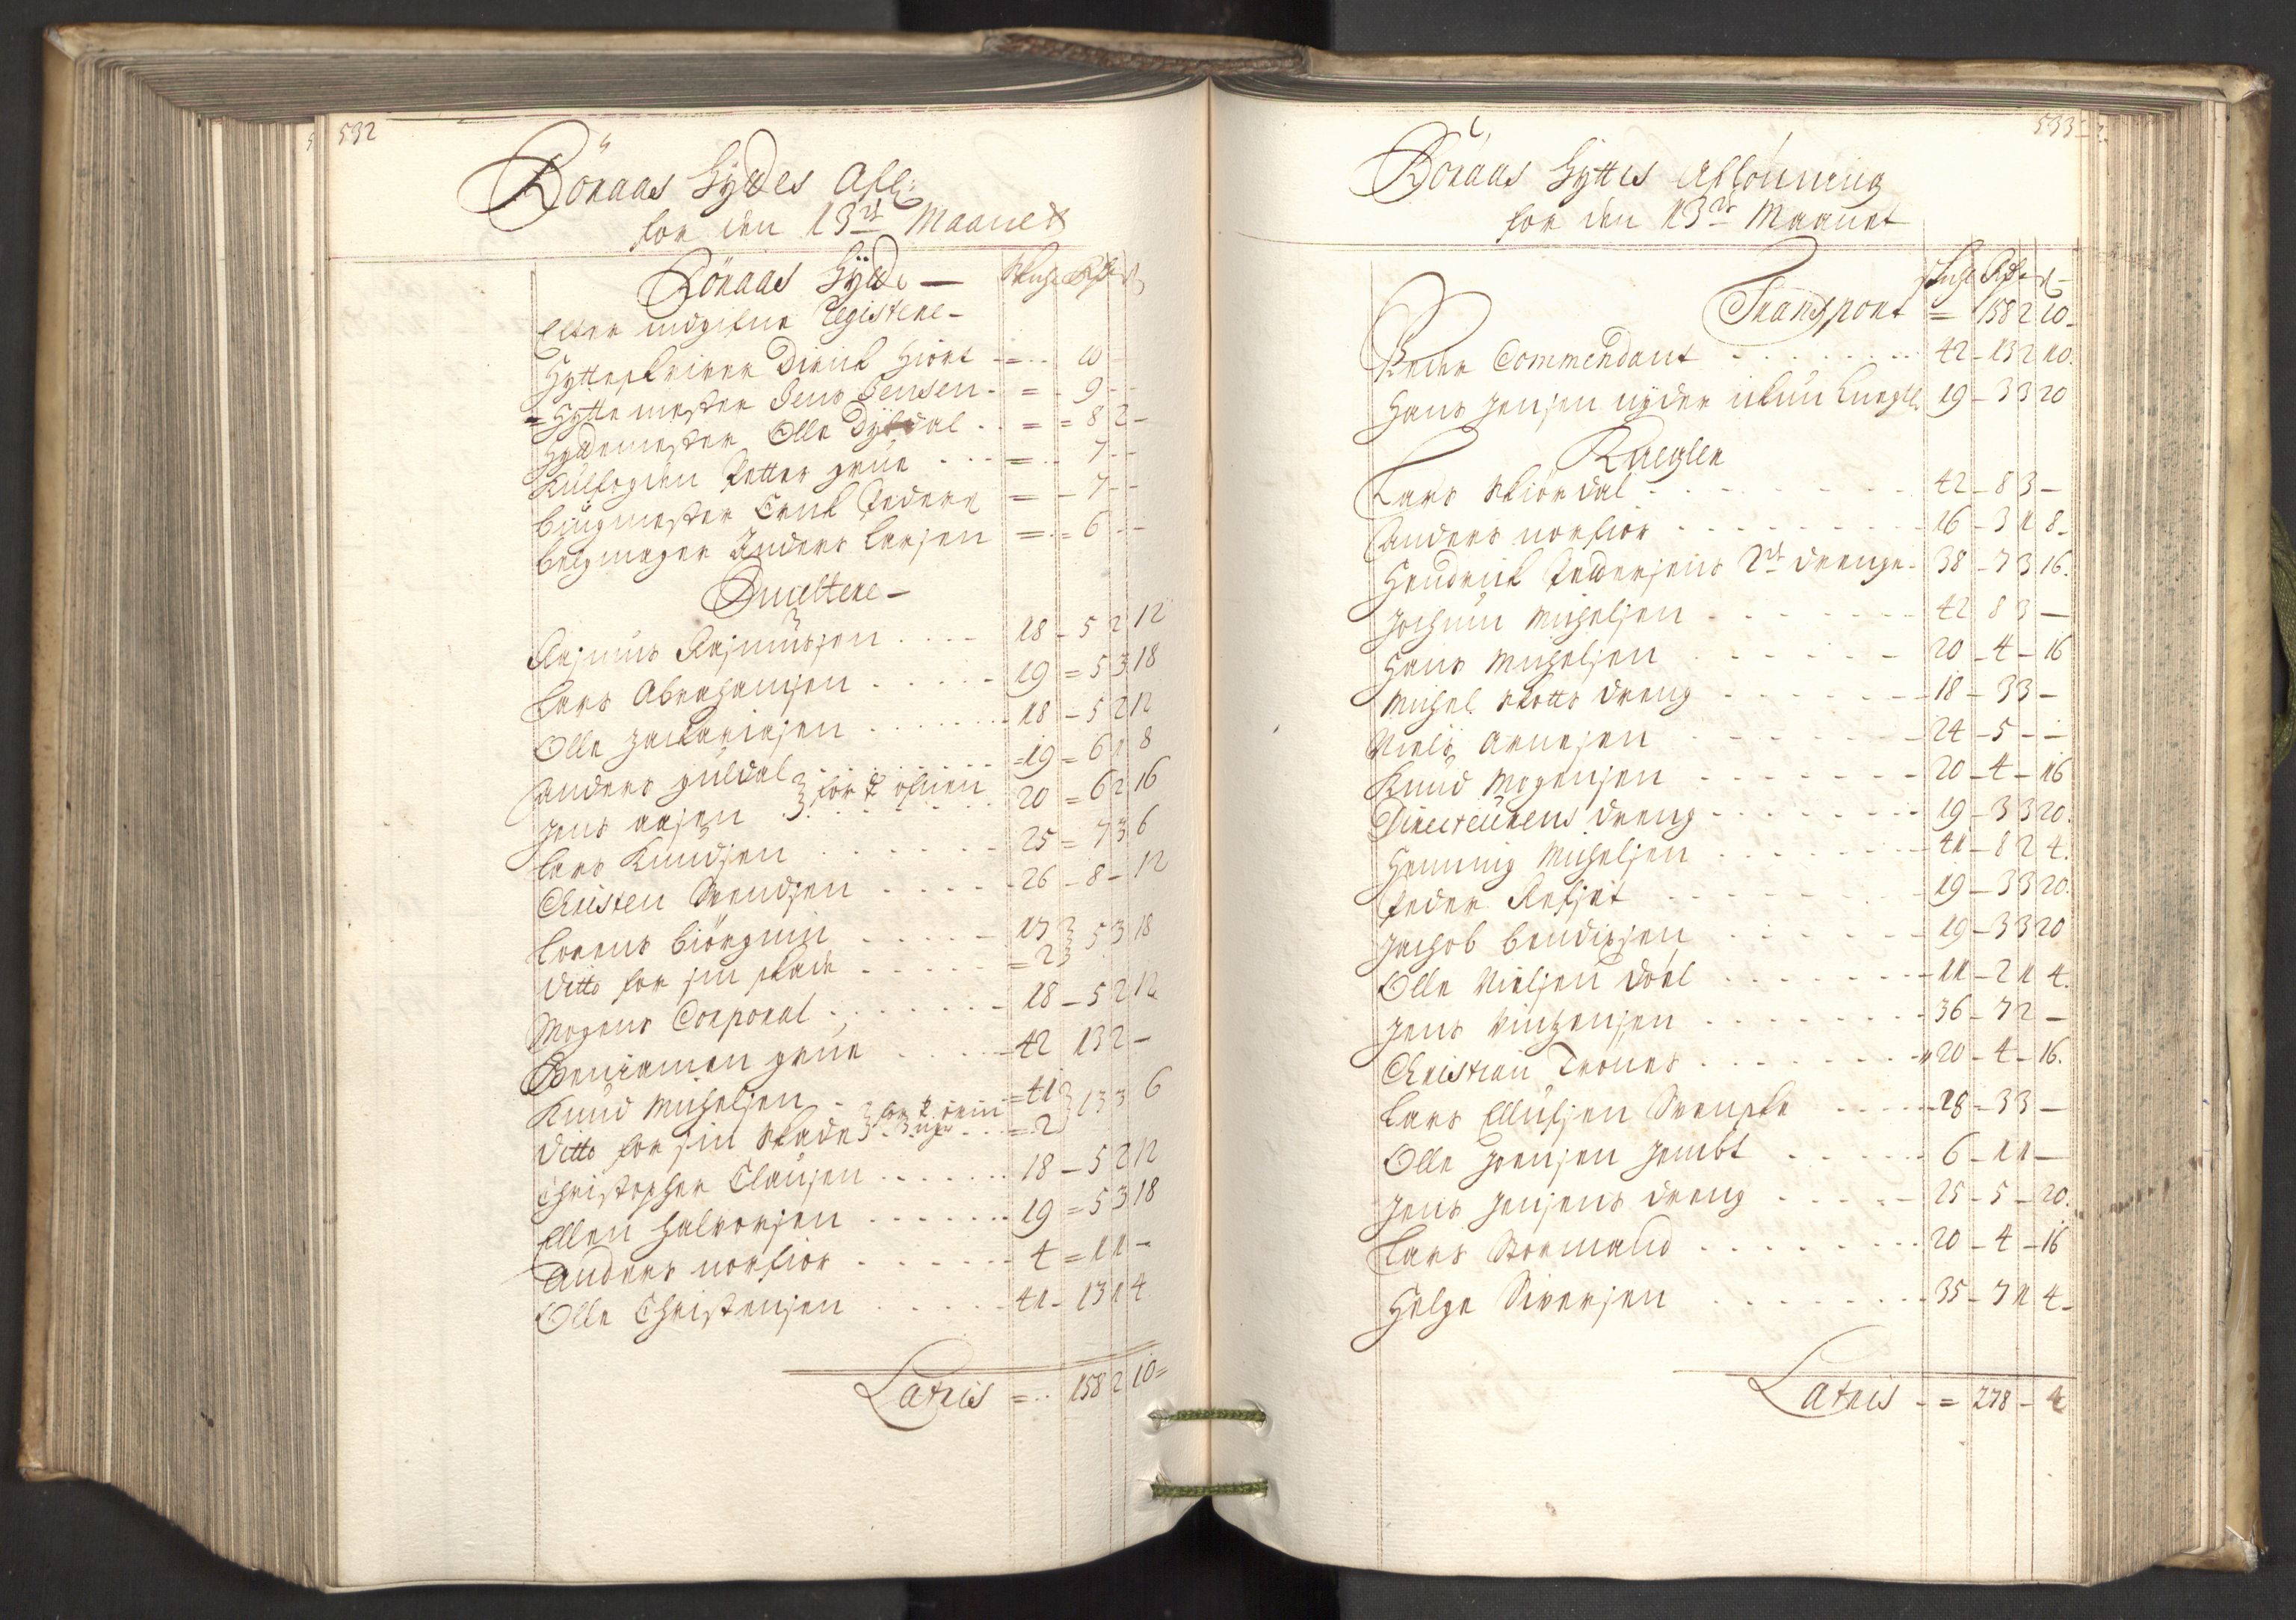 532
Röraas Hyttes Afl:
for den 13de Maanet
Röraas Hytte —
Efter indgifne Registere —
Hytteskriver Dirick Hiort - = - 10 -
Hyttemester Jens Jensen - = - 9 - -
Hyttemester Olle Dÿfdal - - = = 8 2 -
Kulfogden Petter grüe - - - = - 7 - -
Bÿgmester Erick Peders = - 7 - -
belgmager Anders Larsen = - = 6 - -
Smeltere —
Rasmus Rasmussen . . . - 18 - 5 2 12
Lars Abrahamsen . . . . - 19 = 5 3 18
Olle Zackariasen . . . . . . 18 - 5 2 12
Anders guldal . . . . . . . = 19 = 6 1 8
Jens aasen . . . . . . 20 = 6 2 16
Lars Knudsen . . . . . . - 25 = 7 3 6
Christen Svendsen . . . . - 26 - 8 - 12
Lorens Biörgmin . . . . - 17 5 3 18
ditto for sin skade . . . . . = 2
Mogens Corporal . . . . . . - 18 - 5 2 12
Beniamen grüe . . . . - 42 13 2 -
Knud Michelsen - = 41 13 3 6
ditto for sin skade - - = 2
Christopher Clausen . . . . . . . 18 - 5 2 12
Ellen Halvorsen . . . . . . . 19 = 5 3 18
Anders norfior . . . . . . . 4 = 1 1 -
Olle Christensen . . . . . - 41 - 13 1 4
Latris = . . 158 2 10 =
533
Röraas Hyttes Aflönning
for den 13de Maanet
Transport = 158 2 10 -
Peder Commendant - . . . . . . . 42 - 13 2 10.
Hans Jensen nyder 19 - 3 3 20
Knegter
Lars Stiördal - - - - - - - - 42 - 8 3 -
Anders norfior - - - - - - - - 16 - 3 1 8 -
Hendrick Pettersens 2de drenge - 38 - 7 3 16.
Jochum Michelsen . - - - - - - 42 8 3 —
Hans Michelsen . - - - - - 20 - 4 - 16
Michel skotts dreng - - - - - - - 18 - 3 3 -
Niels Arnesen - - - - - - - 24 - 5 - -
Knud Mogensen - - - - - - - 20 - 4 - 16
Directeurens dreng . - - - - - - 19 - 3 3 20.
Henning Michelsen . . . . . . . - 41 - 8 2 4.
Peder Refset . - - - - - - - 19 - 3 3 20.
Jachob bendixsen . . . . . . - 19 - 3 3 20
Olle Nielsen . . . . . . . - 11 - 2 1 4.
Jens Vinzensen . . . . . . . - 36 - 7 2 -
Christian Trones . . . . . . . - 20 - 4 - 16.
Lars Ellufsen Svenske - - - - - 18 - 3 3 -
Olle Joensen Jembt . . . . . - 6 - 1 1 -
Jens Jensens dreng . . - . . - 25 - 5 - 20.
Lars Normand . . . . . . . . 20 - 4 - 16
Helge Siversen . . . . . . . . - 35 - 7 1 4 -
Latris - - = 278 - 4